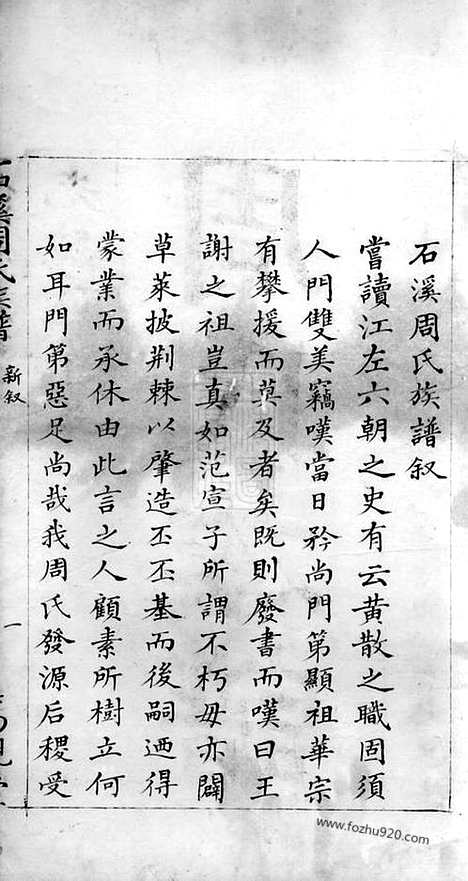 石溪周氏族譜叙
嘗讀江左六朝之史有云黄散之職固須
人門雙美竊嘆當日矜尚門第顯祖華宗
有攀援而莫及者矣既則廢書而嘆曰王
謝之祖豈真如范宣子所謂不朽毋亦闢
草萊披荆棘以肇造丕丕基而後嗣迺得
蒙業而承休由此言之人顧素所樹立何
如耳門第惡足尚哉我周氏發源后稷受
石溪周氏族譜
新叙
一
www.fozhu920.com